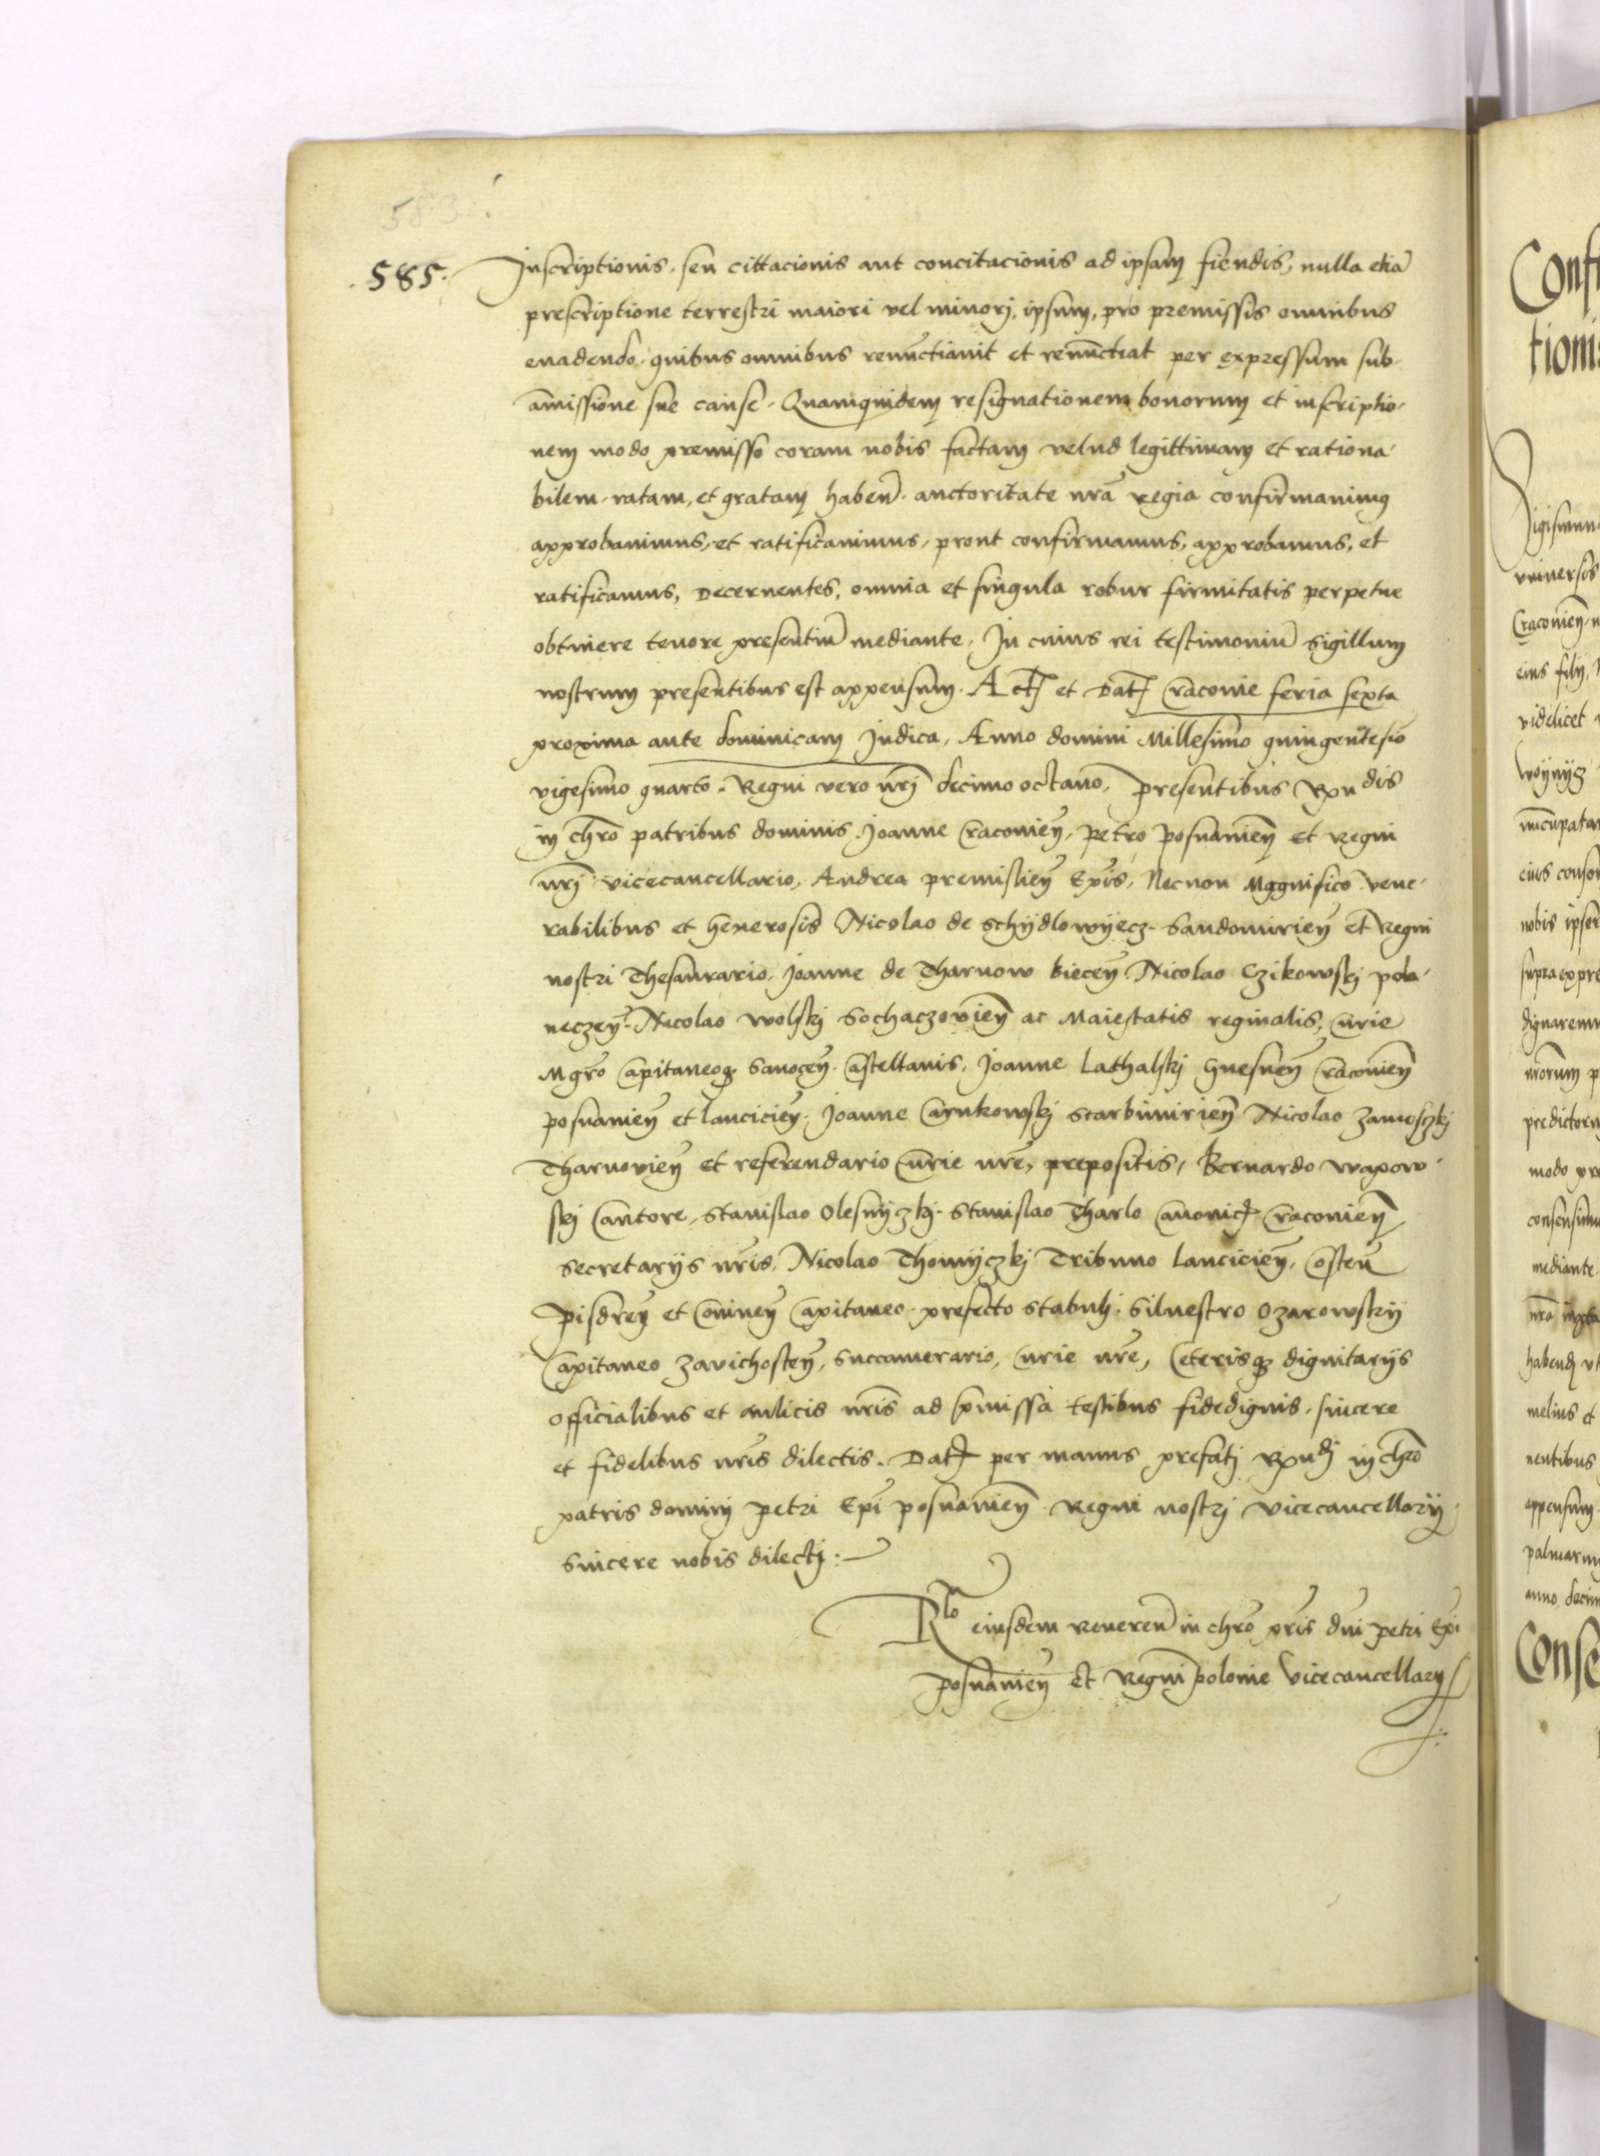 583
585.
Inscriptionis, seu cittacionis aut concitacionis ad ipsam fiendis, nulla etiā
prescriptione terrestri maiori vel minorj, ipsum, pro premissis omnibus
euadendo, quibus omnibus renūctiauit et renūctiat per expressum sub
amissione sue cause. Quamquidem resignationem bonorum et inscriptio,
nem modo premisso coram nobis factam velud legittimam et rationa,
bilem, ratam, et gratam haben̄, auctoritate nrā Regia confirmauimus
approbauimus, et ratificauimus, prout confirmamus, approbamus, et
ratificamus, Decernentes, omnia et singula robur firmitatis perpetue
obtinere tenore presentiū mediante. In cuius rei testimoniū Sigillum
nostrum presentibus est appensum. Act̄ et Dat̄ Cracouie feria sexta
proxima ante dominicam Judica, Anno domini Millesimo quingentesīo
vigesimo quarto. Regni vero nrj̄ decimo octauo, Presentibus Rxndis
in chrō patribus dominis Joanne Cracouien̄, Petro Posnanien̄ et Regni
nrj̄ vicecancellario, Andrea premislien̄ Ep̄is, Necnon Magnifico vene,
rabilibus et Generosis Nicolao de Schydlowyecz Sandomirien̄ et Regni
nostri Thesaurario, Joanne de Tharnow biecen̄ Nicolao Czikowskj pola,
neczen̄, Nicolao Wolskj Sochaczouien̄ ac Maiestatis reginalis, Curie
Mgrō Capitaneoq̄ Sanocen̄, Castellanis, Joanne Lathalskj Gnesnen̄ Cracouien̄
posnanien̄ et lancicien̄, Joanne Carnkowskj Scarbimirien̄ Nicolao Zamoschkj
Tharnouien̄ et referendario Curie nrē, prepositis, Bernardo Wapow,
skj Cantore, Stanislao Olesnyczkj, Stanislao Tharlo Canonic̄ Cracouien̄,
Secretarijs nrīs, Nicolao Thomyczkj Tribuno Lancicien̄, Costen̄
Pisdren̄ et Coninen̄ Capitaneo, prefecto Stabulj, Siluestro Ozarowskij
Capitaneo Zavichosten̄, Succamerario, Curie nrē, Ceterisq̄ dignitarijs
Officialibus et aulicis nrīs ad p̄missa testibus fidedignis, sincere
et fidelibus nrīs dilectis. Dat̄ per manus prefatj Rxndj in chrō
patris dominj petri Ep̄i posnanien̄ Regni nostrj vicecancellarij
Sincere nobis dilectj:
Rlo eiusdem Reueren̄ in chrō pr̄is dn̄i petri Ep̄i
posnanien̄ et Regni polonie vicecancellarij
Confi
tionis
Sigismun
vniuersis
Cracouien̄
eius filij
videlicet
woynyz
nūcupatar
eius consor
nobis ipsor
supra expre
dignaremur
predictorū
modo pre
consensimu
mediante
habend̄ vt
melius et
nentibus
appensum
palmarum
anno decim
Conse